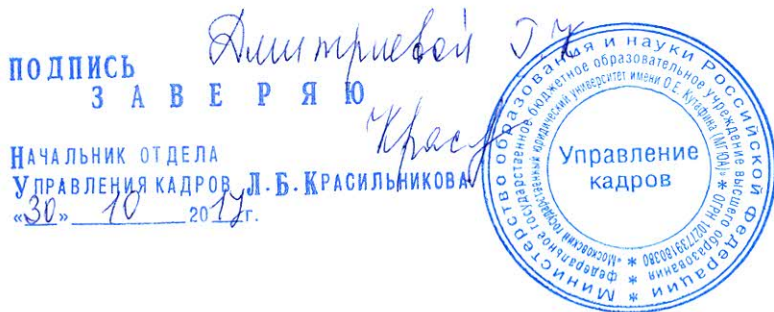 Дмитриевой Г К
ПОДПИСЬ
ЗАВЕРЯЮ
НАЧАЛЬНИК ОТДЕЛА
УПРАВЛЕНИЯ КАДРОВ Л.Б. КРАСИЛЬНИКОВА
«30» 10 2017г.
Министерство образования и науки Российской Федерации *
федеральное государственное бюджетное образовательное учреждение высшего образования *
«Московский государственный юридический университет имени О.Е. Кутафина (МГЮА)» * ОГРН 1027739180380 *
Управление
кадров